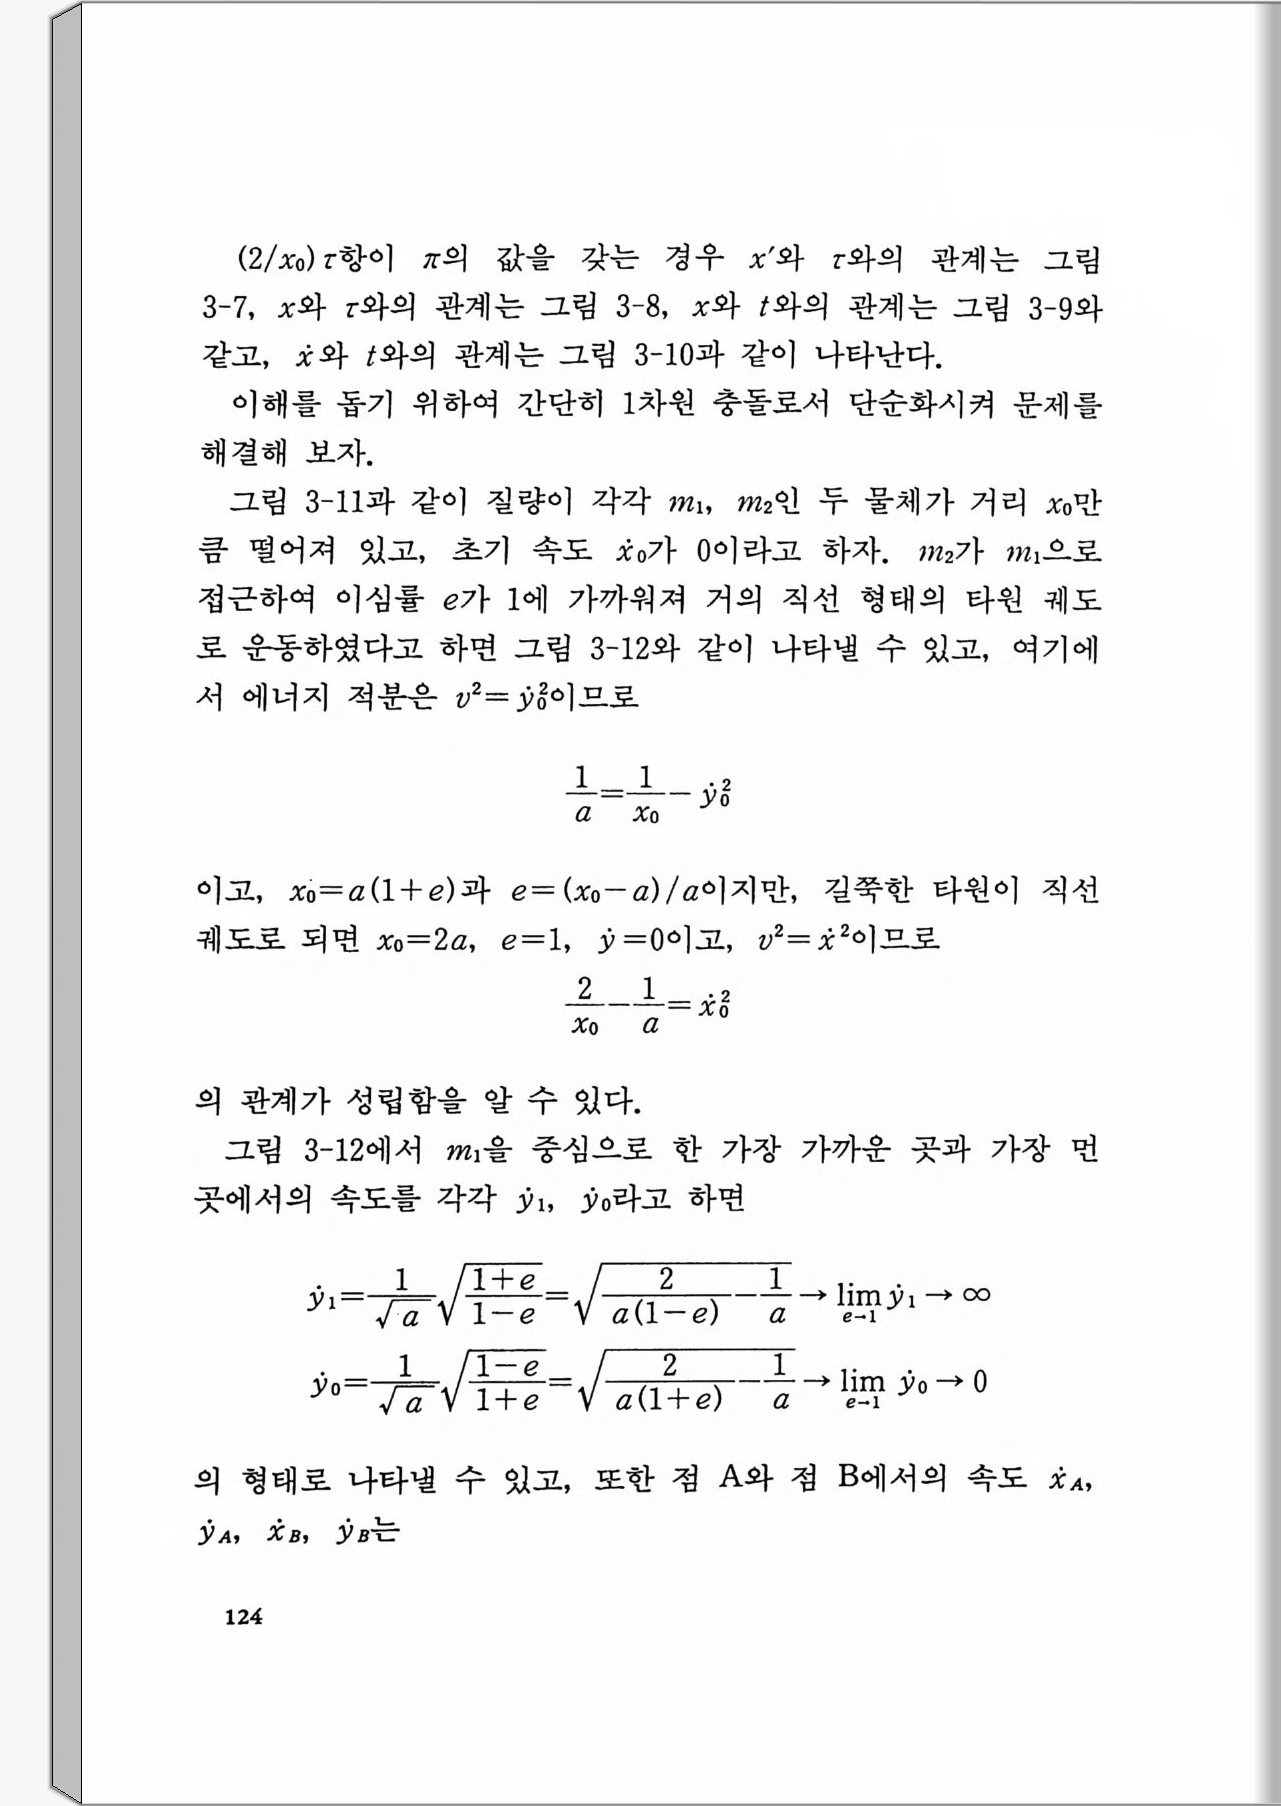 (2/x₀)τ항이 π의 값을 갖는 경우 x′와 τ와의 관계는 그림
3-7, x와 τ와의 관계는 그림 3-8, x와 t와의 관계는 그림 3-9와
같고, ẋ와 t와의 관계는 그림 3-10과 같이 나타난다.
이해를 돕기 위하여 간단히 1차원 충돌로서 단순화시켜 문제를
해결해 보자.
그림 3-11과 같이 질량이 각각 m₁, m₂인 두 물체가 거리 x₀만
큼 떨어져 있고, 초기 속도 ẋ₀가 0이라고 하자. m₂가 m₁으로
접근하여 이심률 e가 1에 가까워져 거의 직선 형태의 타원 궤도
로 운동하였다고 하면 그림 3-12와 같이 나타낼 수 있고, 여기에
서 에너지 적분은 v²=ẏ₀²이므로
1/a=1/x₀−ẏ₀²
이고, x₀=a(1+e)과 e=(x₀−a)/a이지만, 길쭉한 타원이 직선
궤도로 되면 x₀=2a, e=1, ẏ=0이고, v²=ẋ²이므로
2/x₀−1/a=ẋ₀²
의 관계가 성립함을 알 수 있다.
그림 3-12에서 m₁을 중심으로 한 가장 가까운 곳과 가장 먼
곳에서의 속도를 각각 ẏ₁, ẏ₀라고 하면
ẏ₁=1/√a √((1+e)/(1−e))=√(2/(a(1−e))−1/a)→lim_{e→1} ẏ₁→∞
ẏ₀=1/√a √((1−e)/(1+e))=√(2/(a(1+e))−1/a)→lim_{e→1} ẏ₀→0
의 형태로 나타낼 수 있고, 또한 점 A와 점 B에서의 속도 ẋ_A,
ẏ_A, ẋ_B, ẏ_B는
124